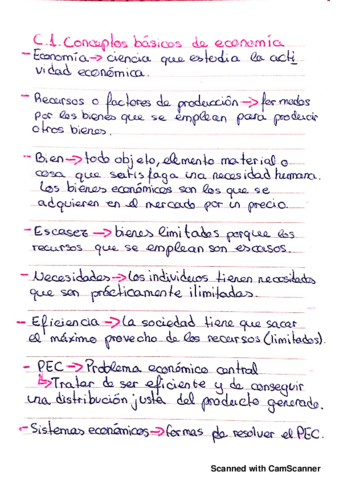 C.1. Conceptos básicos de economía
- Economía → ciencia que estudia la acti
vidad económica.
- Recursos o factores de producción → formados
por los bienes que se emplean para producir
otros bienes.
- Bien → todo objeto, elemento material o
cosa que satisfaga una necesidad humana.
Los bienes económicos son los que se
adquieren en el mercado por un precio.
- Escasez → bienes limitados porque los
recursos que se emplean son escasos.
- Necesidades → los individuos tienen necesidades
que son prácticamente ilimitadas.
- Eficiencia → La sociedad tiene que sacar
el máximo provecho de los recursos (limitados).
- PEC → Problema económico central
↳ Tratar de ser eficiente y de conseguir
una distribución justa del producto generado.
- Sistemas económicos → formas de resolver el PEC.
Scanned with CamScanner